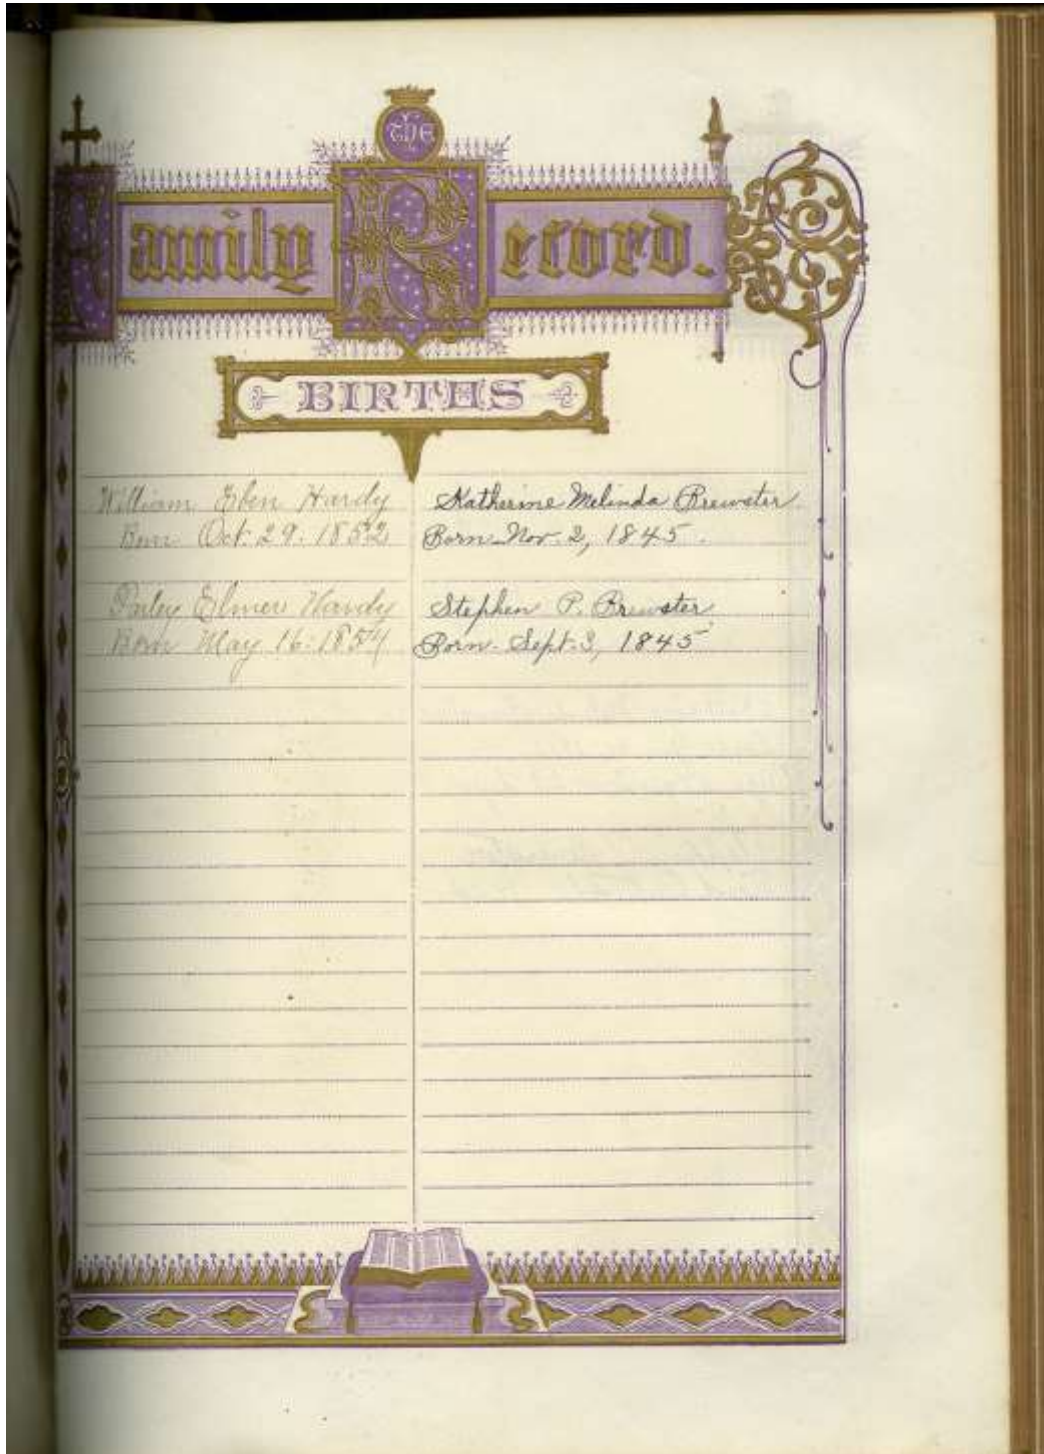 The
Family Record.
BIRTHS
William Eben Hardy
Born Oct. 29. 1852
Elmer Hardy
Born May 16. 1854
Katherine Melinda Brewster.
Born Nov. 2, 1845.
Stephen P. Brewster
Born Sept. 3, 1845